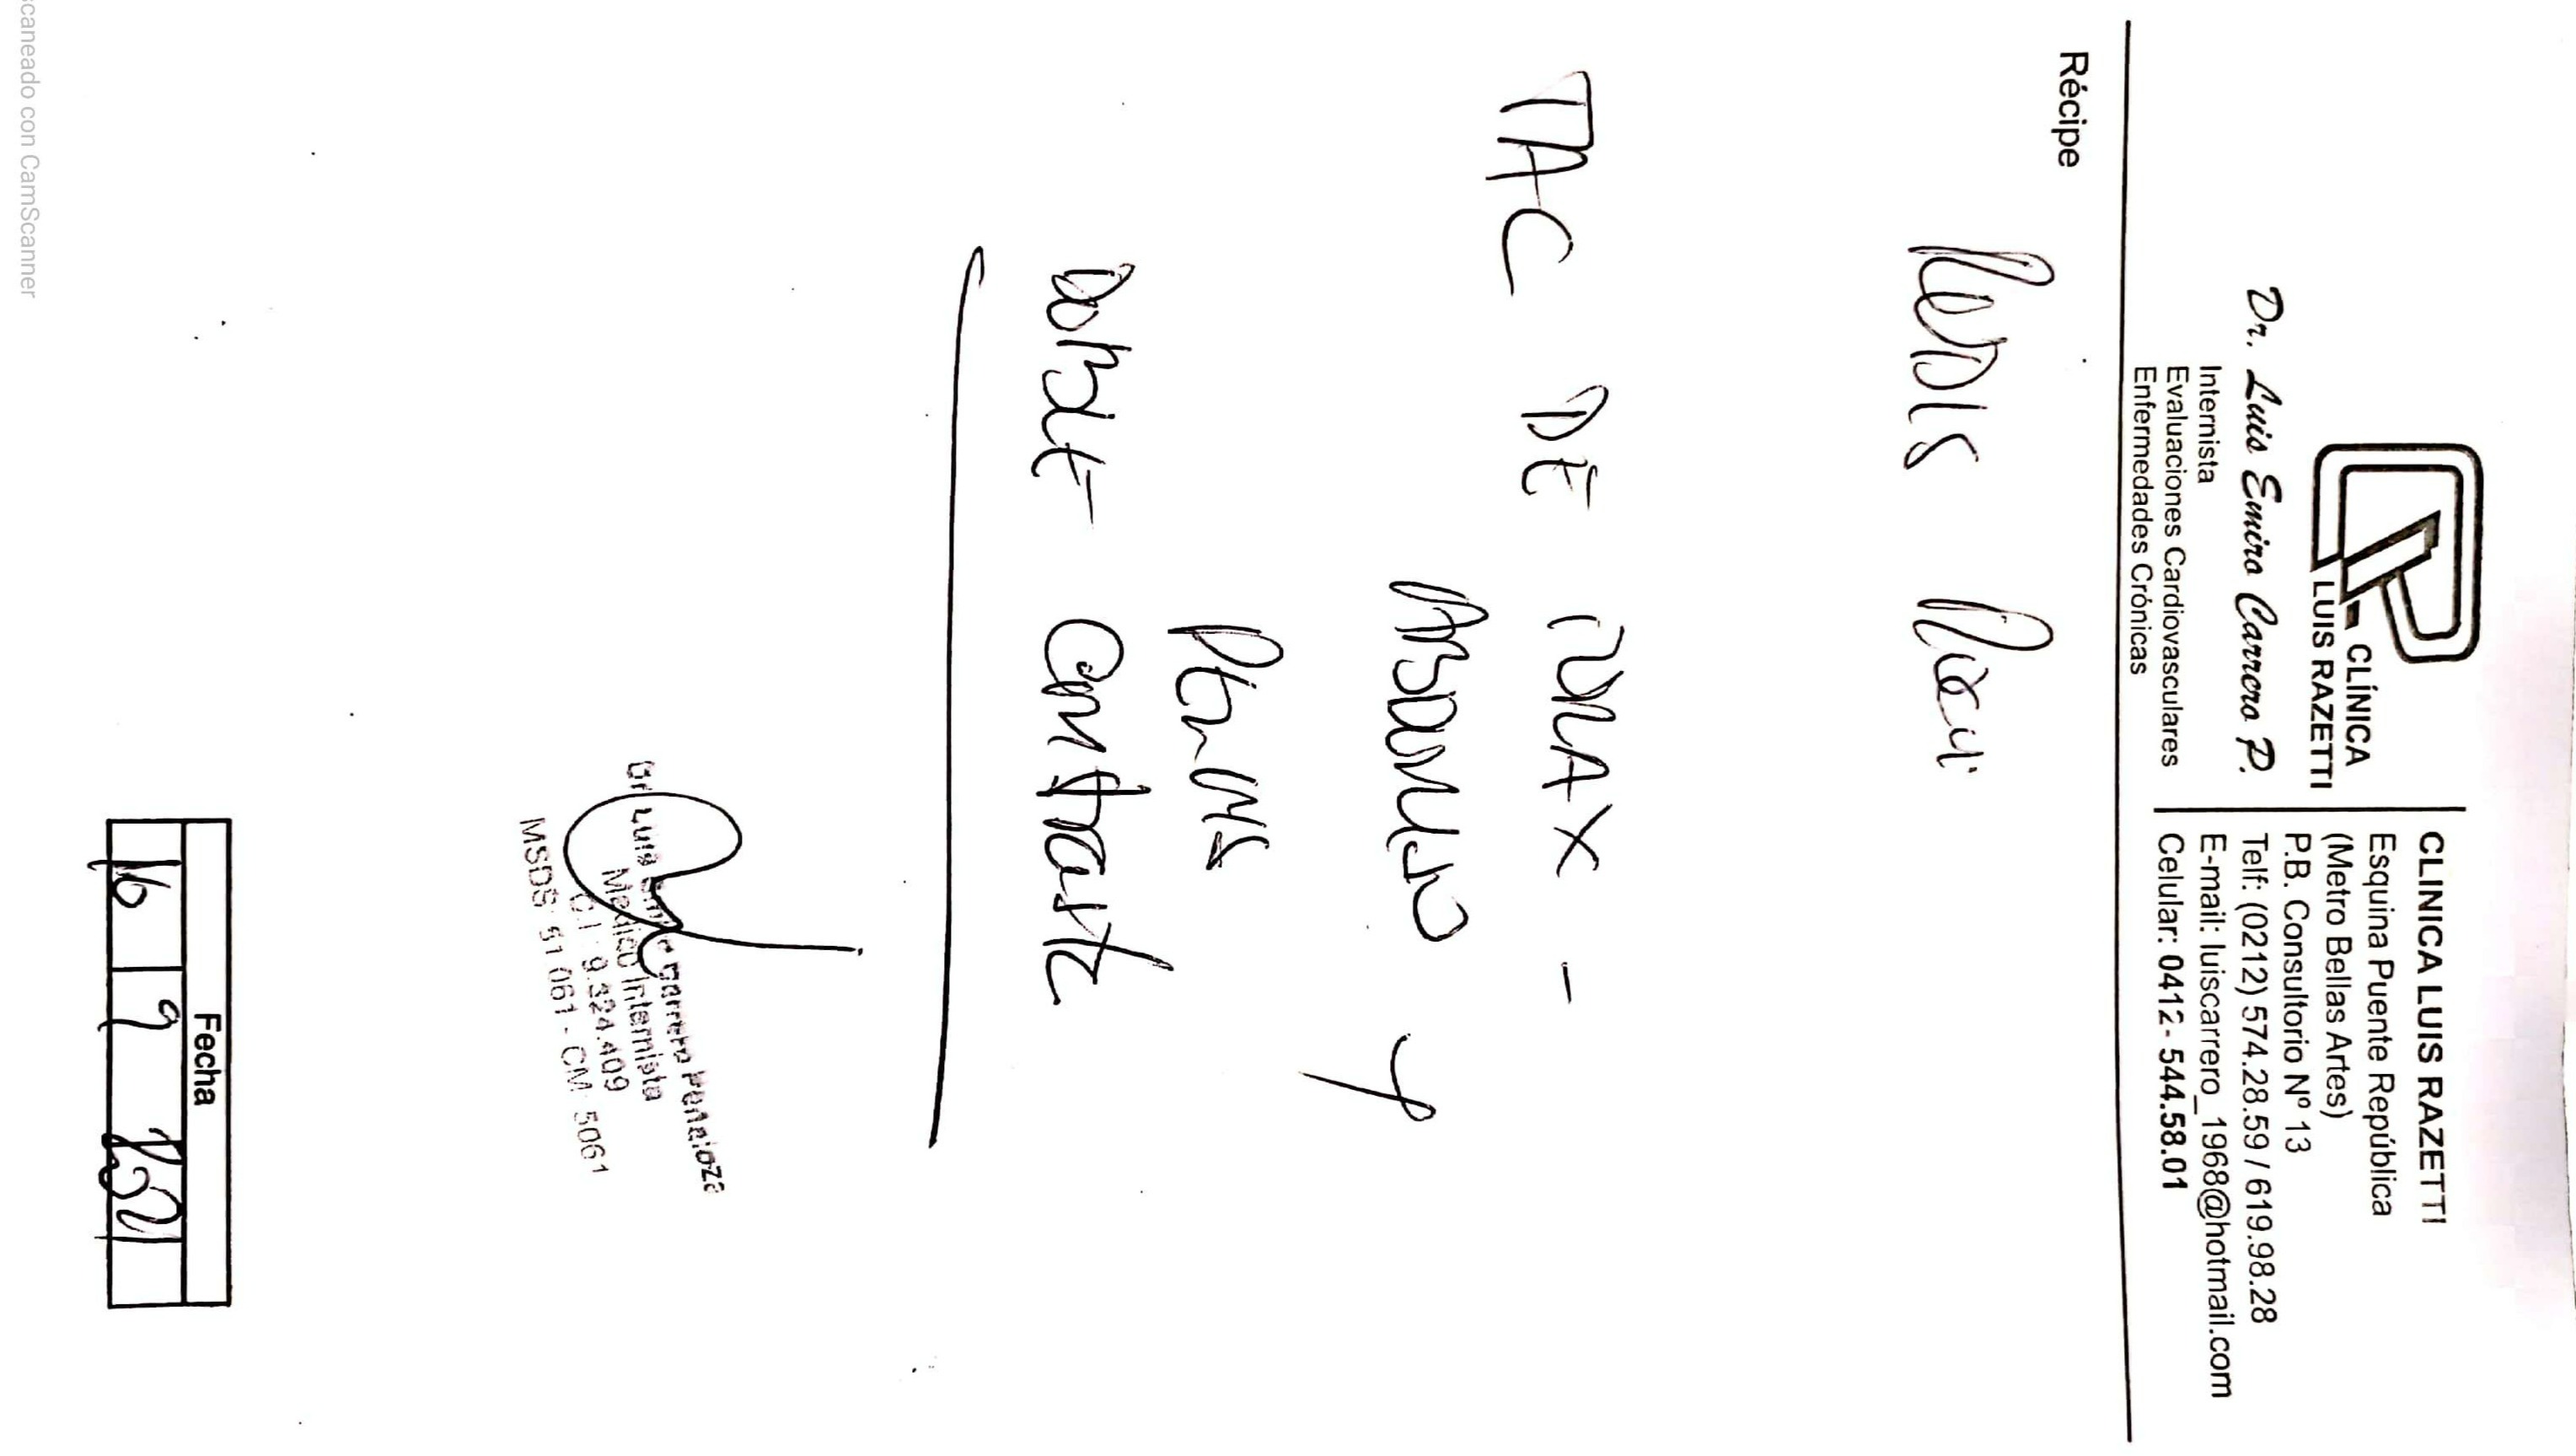 CLÍNICA
LUIS RAZETTI
Dr. Luis Emiro Carrero P.
Internista
Evaluaciones Cardiovasculares
Enfermedades Crónicas
CLINICA LUIS RAZETTI
Esquina Puente República
(Metro Bellas Artes)
P.B. Consultorio Nº 13
Telf: (0212) 574.28.59 / 619.98.28
E-mail: luiscarrero_1968@hotmail.com
Celular: 0412- 544.58.01
Récipe
TAC DE TORAX -
ABDOMEN Y
PELVIS
Doble Contraste
Dr Luis Carrero Peñaloza
Medico Internista
C.I. 9.324.409
MSDS: 51 061 - CM: 5061
Fecha
16 9
scaneado con CamScanner